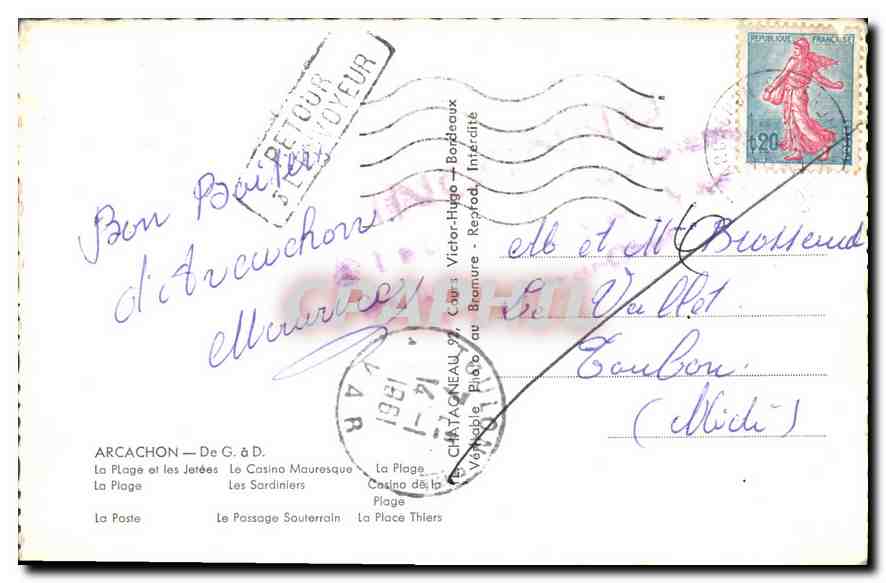 RETOUR
A L'ENVOYEUR
REPUBLIQUE FRANÇAISE
0,20
Bon Baisers
d'Arcachon
Maurice
M et Mt Brossaud
Le Vallet
Toulon
(Midi)
CPAPHIL
E. CHATAGNEAU 92, Cours Victor-Hugo — Bordeaux
Véritable Photo au Bromure - Reprod. Interdite
TOULON
14 - 1
1961
VAR
ARCACHON — De G. à D.
La Plage et les Jetées Le Casino Mauresque La Plage
La Plage Les Sardiniers Casino de la
Plage
La Poste Le Passage Souterrain La Place Thiers